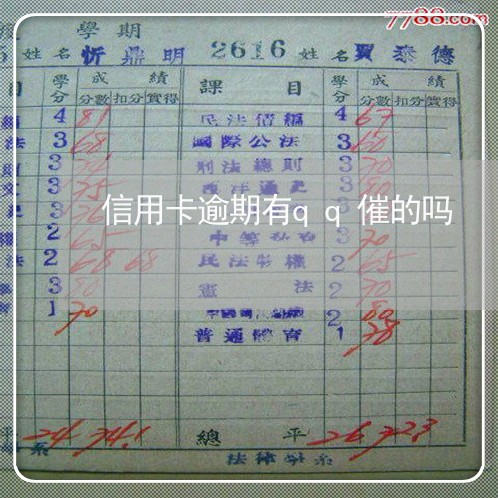 7788.com
學期
姓名 忻鼎明 2616 姓名 賈泰德
目 學分 成績 課目 學分 成績
分數 扣分 實得 分數 扣分 實得
4 81 民法債編 4 67
法 3 68 國際公法 3 60
3 刑法總則 3 70
3 75 西洋通史 3 80
信用卡逾期有qq催的吗
2 65 3 70
法 2 68 68 民法物權 2 65
3 80 憲法 2 70
1 70 2 80
普通體育 1 78
平 24 74.1 總平 26 72.3
系 法律學系